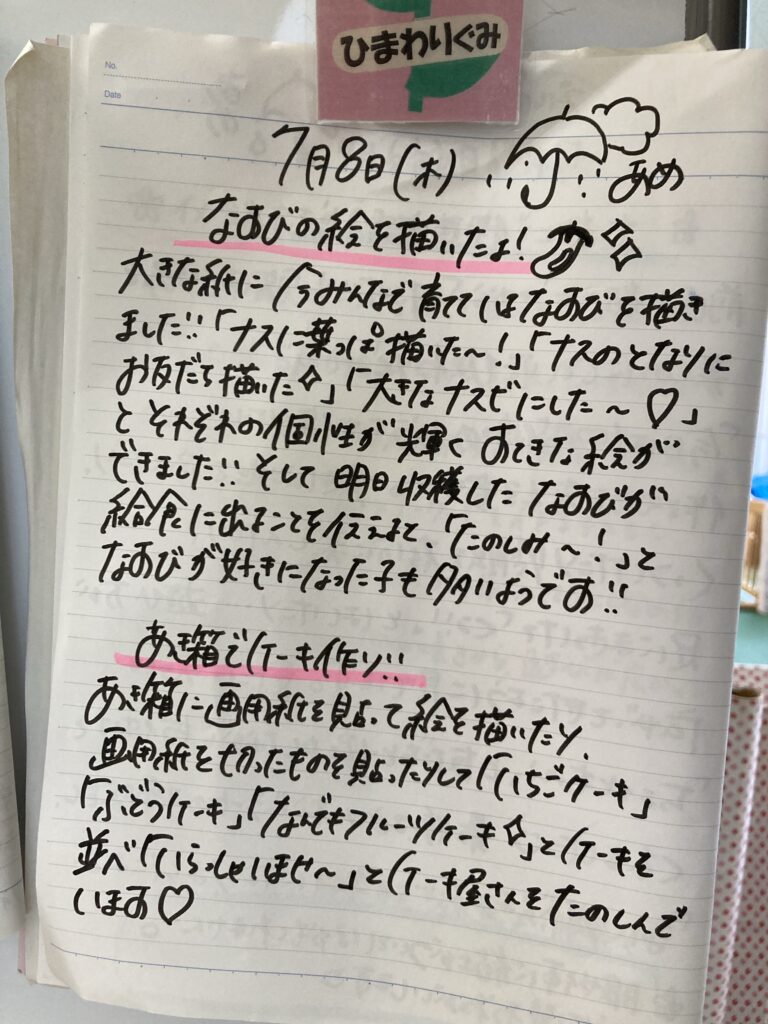 ひまわりぐみ
No.
Date
7月8日(木) あめ
なすびの絵を描いたよ!
大きな紙に、今みんなで育てているなすびを描き
ました!!「ナスに葉っぱ描いた〜!」「ナスのとなりに
お友だち描いた✧」「大きなナスビにした〜♡」
と それぞれの個性が輝く すてきな絵が
できました!! そして 明日収穫した なすびが
給食に出ることを伝えると、「たのしみ〜!」と
なすびが好きになった子も多いようです!!
あき箱でケーキ作り!!
あき箱に画用紙を貼って絵を描いたり、
画用紙を切ったものを貼ったりして「いちごケーキ」
「ぶどうケーキ」「なんでもフルーツケーキ✧」とケーキを
並べ「いらっしゃいませ〜」とケーキ屋さんをたのしんで
います♡